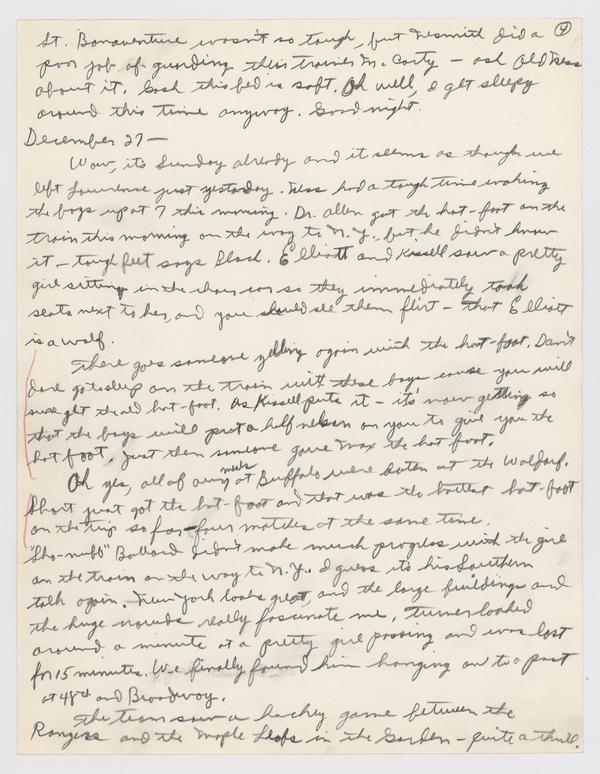 4
St. Bonaventure wasn't so tough, but Nesmith did a
poor job of guarding their trainer McCarty — ask Old Ness
about it. Gosh this bed is soft. Oh well, I get sleepy
around this time anyway. Good night.
December 27 —
Wow, its Sunday already and it seems as though we
left Lawrence just yestoday. Ness had a tough time waking
the boys up at 7 this morning. Dr. Allen got the hot-foot on the
train this morning on the way to N.Y. but he didn't know
it — tough feet says Black. Elliott and Kissell saw a pretty
girl sitting in the chair car so they immediately took
seats next to her, and you should see them flirt — that Elliott
is a wolf.
There goes someone yelling again with the hot-foot. Don't
dare go to sleep on the train with these boys cause you will
sure get the old hot-foot. As Kissell puts it — it's now getting so
that the boys will put a half nelson on you to give you the
hot foot. Just then someone gave Max the hot foot.
Oh yes, all of our meals at Buffalo were eaten at the Waldorf.
Short just got the hot-foot and that was the hottest hot-foot
on the trip so far — four matches at the same time.
"Sho-nuff" Ballard didn't make much progress with the girl
on the train on the way to N.Y. I guess its his Southern
talk again. New York looks great, and the large buildings and
the huge crowds really fascinate me. Turner looked
around a minute at a pretty girl passing and was lost
for 15 minutes. We finally found him hanging on to a post
at 48th and Broadway.
The team saw a hockey game between the
Rangers and the Maple Leafs in the Garden — quite a thrill.